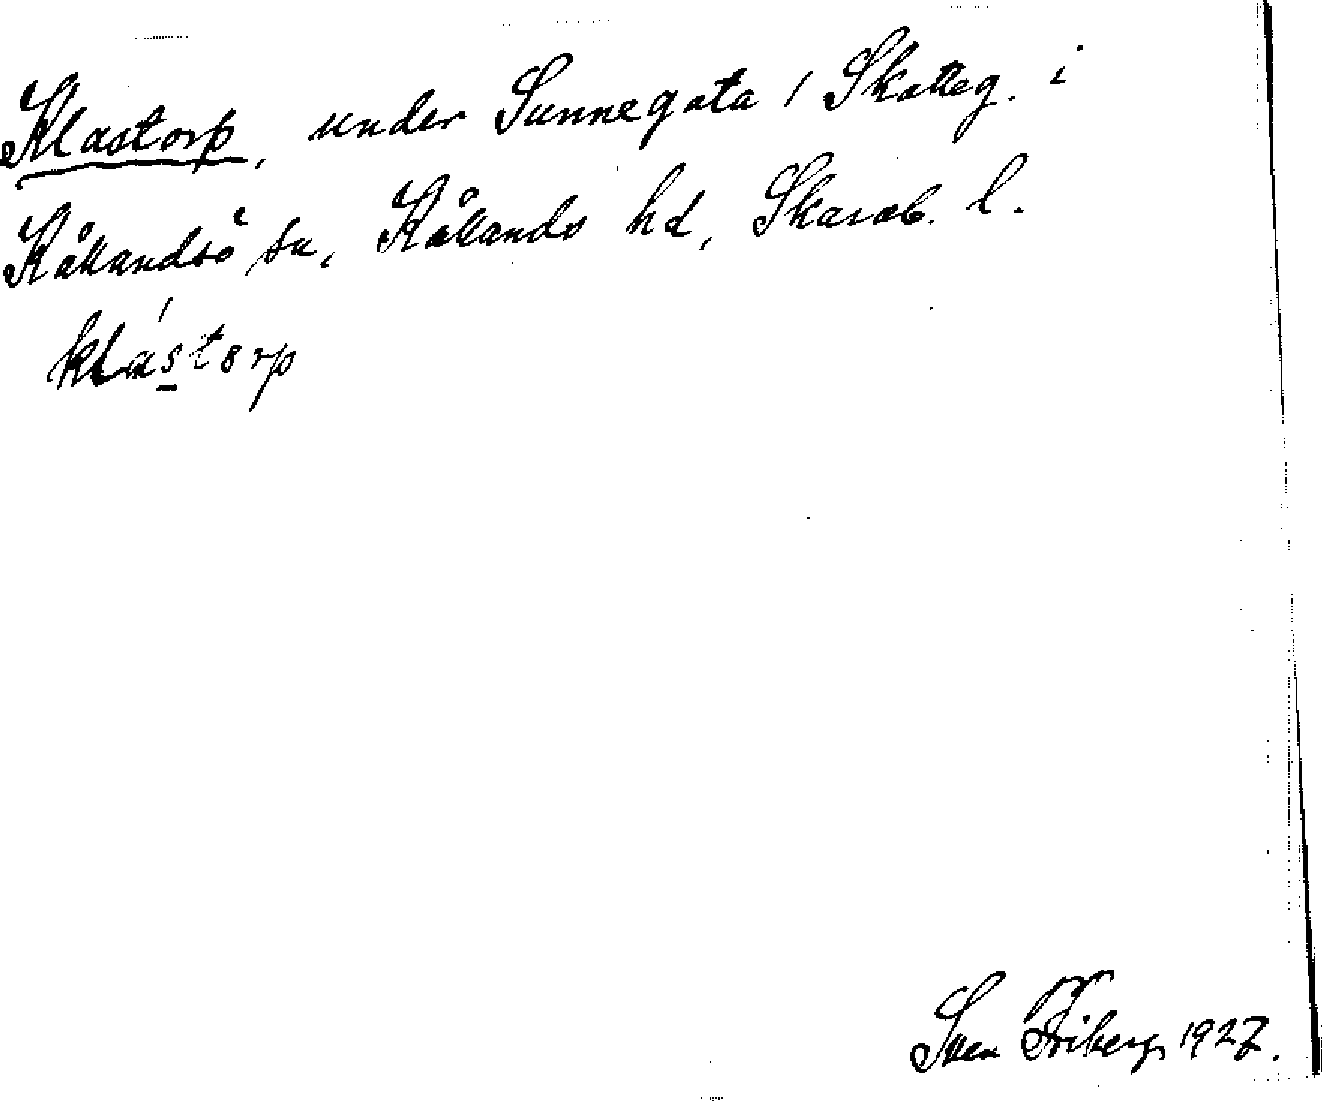 Klastorp, under Sunnegata i Skatteg. i
Kållandsö sn, Kållands hd, Skarab. l.
klástorp
Sven Friberg 1927.